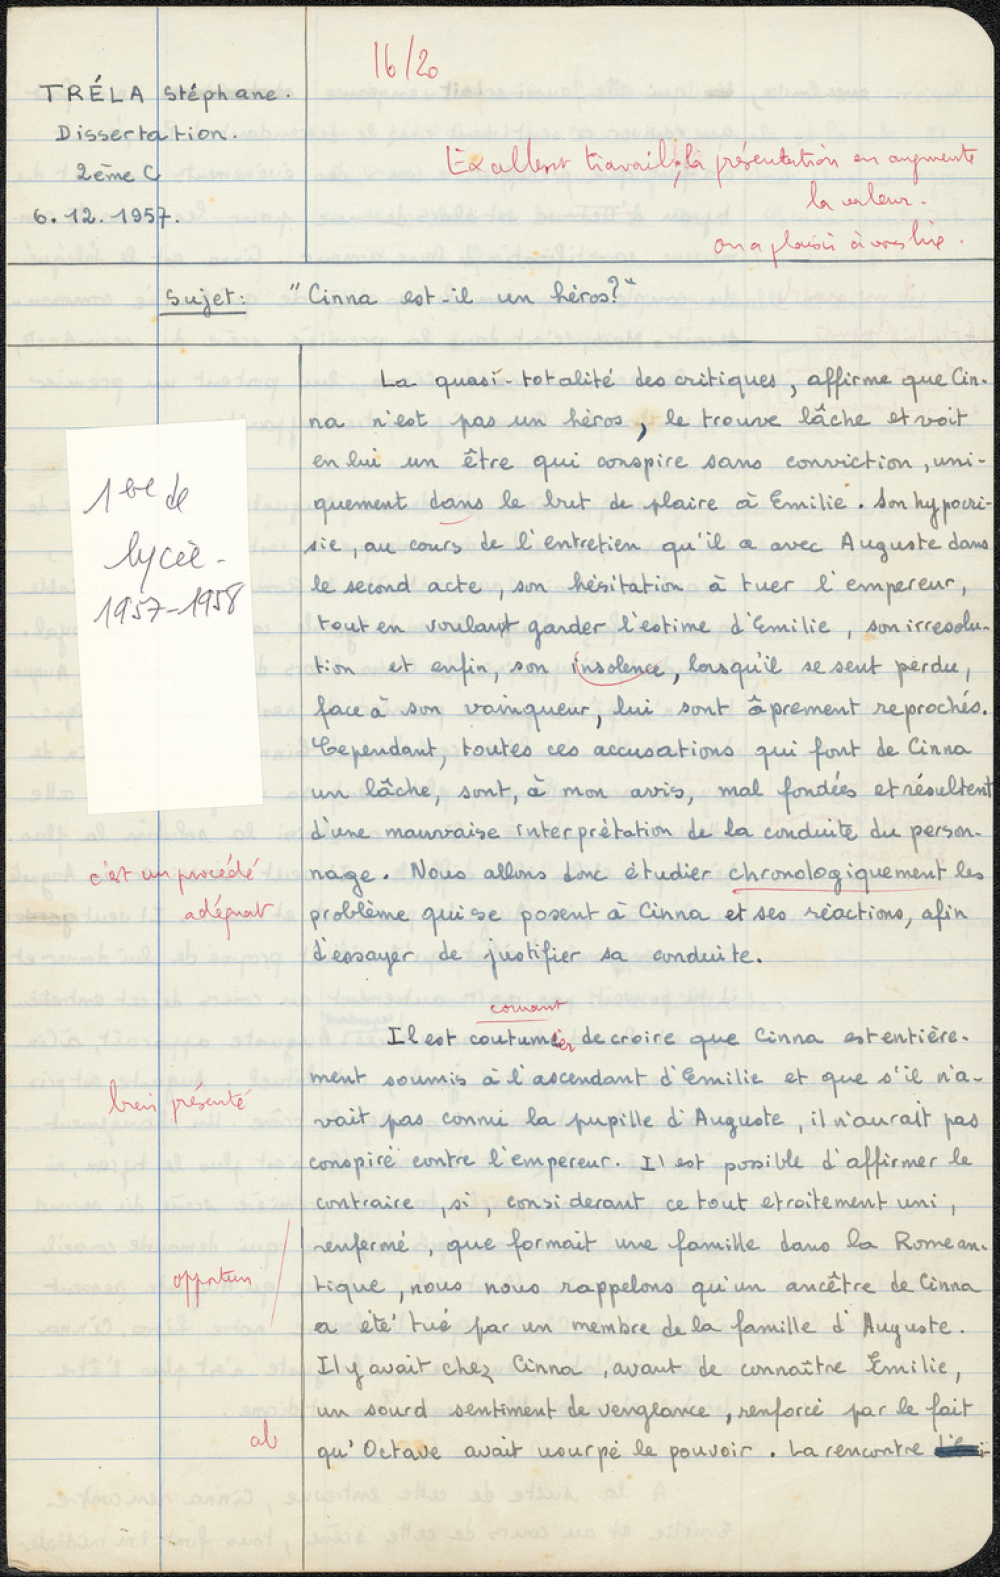 16/20
TRÉLA Stéphane.
Dissertation.
2ème C
6.12.1957.
Excellent travail; la présentation en augmente
la valeur.
on a plaisir à vous lire.
Sujet: "Cinna est-il un héros?"
La quasi-totalité des critiques, affirme que Cin-
na n'est pas un héros, le trouve lâche et voit
en lui un être qui conspire sans conviction, uni-
quement dans le but de plaire à Emilie. Son hypocri-
sie, au cours de l'entretien qu'il a avec Auguste dans
le second acte, son hésitation à tuer l'empereur,
tout en voulant garder l'estime d'Emilie, son irresolu-
tion et enfin, son insolence, lorsqu'il se sent perdu,
face à son vainqueur, lui sont âprement reprochés.
Cependant, toutes ces accusations qui font de Cinna
un lâche, sont, à mon avis, mal fondées et résultent
d'une mauvaise interprétation de la conduite du person-
nage. Nous allons donc étudier chronologiquement les
problème qui se posent à Cinna et ses réactions, afin
d'essayer de justifier sa conduite.
1ere de
lycée-
1957-1958
c'est un procédé
adéquat
courant
Il est coutumier de croire que Cinna est entière-
ment soumis à l'ascendant d'Emilie et que s'il n'a-
vait pas connu la pupille d'Auguste, il n'aurait pas
conspiré contre l'empereur. Il est possible d'affirmer le
contraire, si, considerant ce tout etroitement uni,
renfermé, que formait une famille dans la Rome an-
tique, nous nous rappelons qu'un ancêtre de Cinna
a été tué par un membre de la famille d'Auguste.
Il y avait chez Cinna, avant de connaître Emilie,
un sourd sentiment de vengeance, renforcé par le fait
qu'Octave avait usurpé le pouvoir. La rencontre
bien présenté
opportun